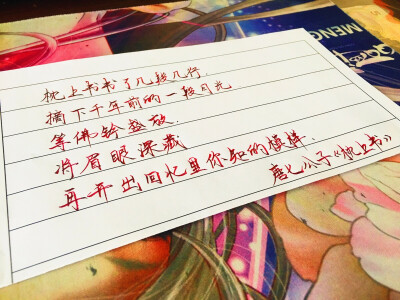 枕上书书了几段几行
摘下千年前的一段月光
等佛铃盛放
将眉眼深藏
再开出回忆里你我的模样.
唐七公子《枕上书》
MENG